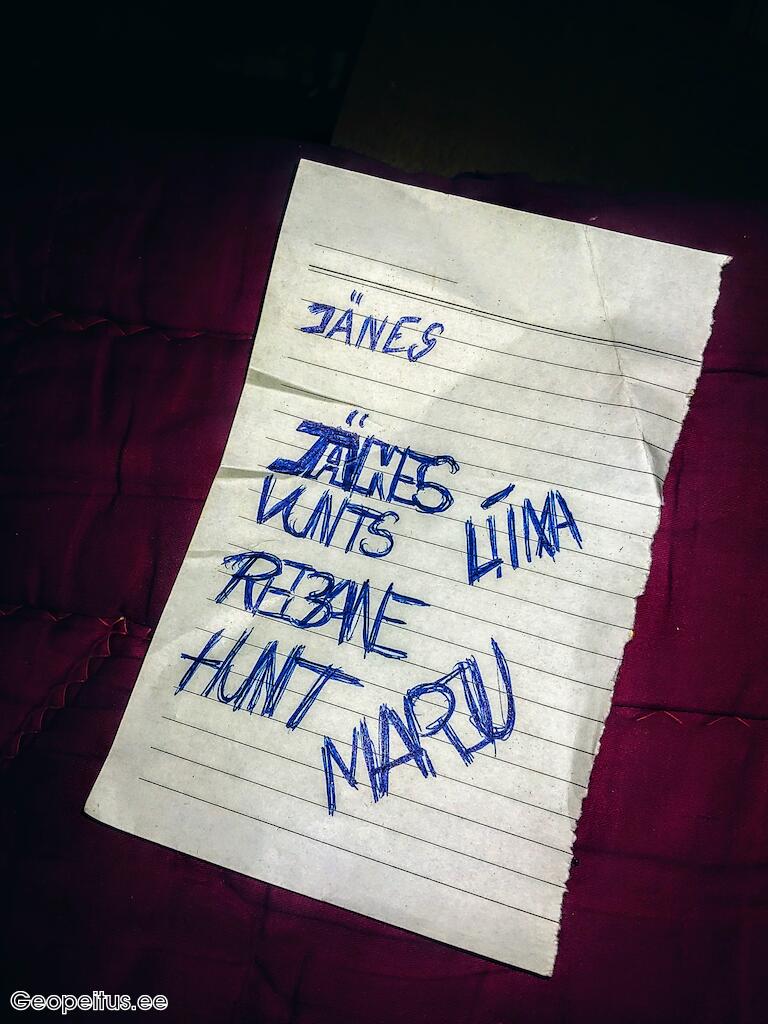 JÄNES
JÄNES
VUNTS
LIINA
REBANE
HUNT
MARJU
Geopeitus.ee